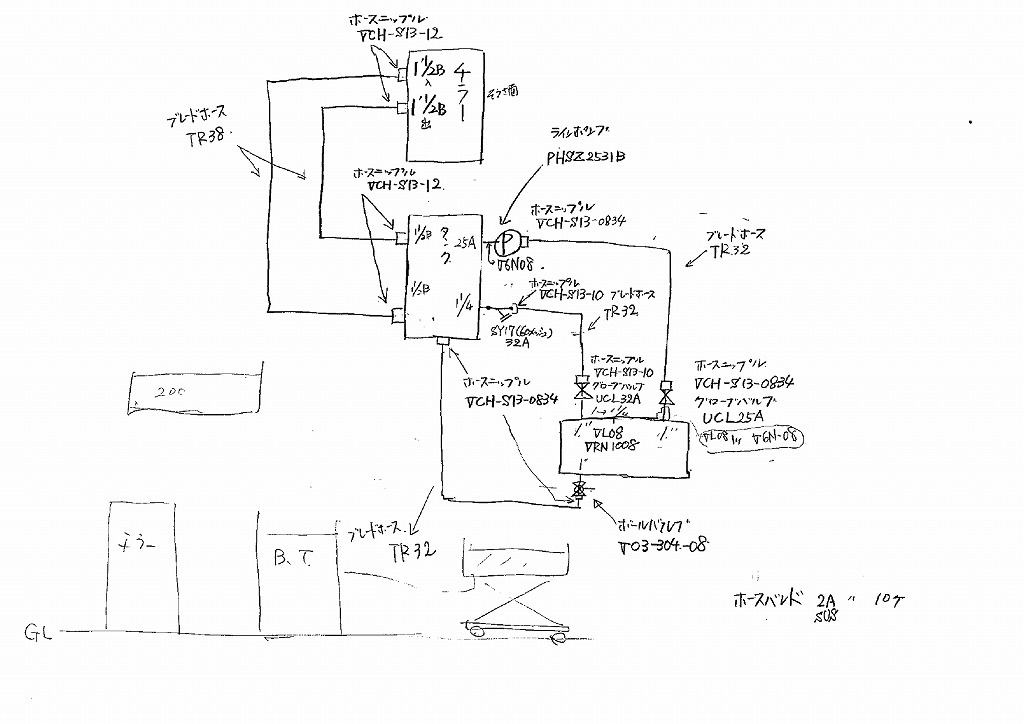 ホースニップル
VCH-S13-12
1 1/2B
入
1 1/2B
出
チラー
ブレードホース
TR38
ラインポンプ
PHSZ2531B
ホースニップル
VCH-S13-12
ホースニップル
VCH-S13-0834
1 1/2B
タンク
25A
P
V6N08
ブレードホース
TR32
1 1/2B
1 1/4
ホースニップル
VCH-S13-10
ブレードホース
TR32
SY17(60メッシュ)
32A
ホースニップル
VCH-S13-0834
ホースニップル
VCH-S13-10
グローブバルブ
UCL32A
ホースニップル
VCH-S13-0834
グローブバルブ
UCL25A
VL08
V6N-08
1"→1 1/4
1"
VL08
VRN1008
1"
1"
ボールバルブ
VO3-304-08
ブレードホース
TR32
200
チラー
B.T
GL
ホースバンド
2A
SUS
10ケ